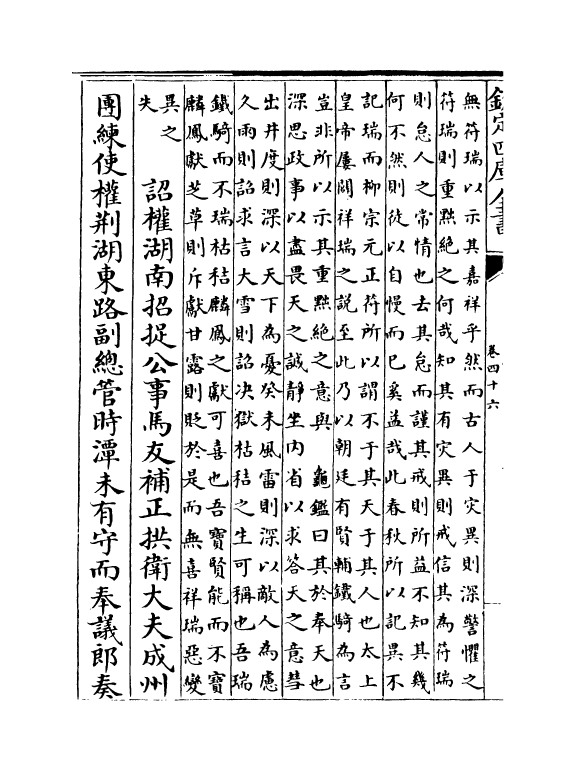 欽定四庫全書
卷四十六
無符瑞以示其嘉祥乎然而古人于灾異則深警懼之
符瑞則重黙絶之何哉知其有灾異則戒信其為符瑞
則怠人之常情也去其怠而謹其戒則所益不知其幾
何不然則徒以自慢而已奚益哉此春秋所以記異不
記瑞而栁宗元正符所以謂不于其天于其人也太上
皇帝屢闢祥瑞之説至此乃以朝廷有賢輔鐵騎為言
豈非所以示其重黙絶之意與　龜鑑曰其於奉天也
深思政事以盡畏天之誠静坐内省以求答天之意彗
出井度則深以天下為憂癸未風雷則深以敵人為慮
久雨則詔求言大雪則詔决獄枯秸之生可稱也吾瑞
鐵騎而不瑞枯秸麟鳳之獻可喜也吾寶賢能而不寶
麟鳳獻芝草則斥獻甘露則貶於是而無喜祥瑞惡變
異之
失
詔權湖南招捉公事馬友補正拱衛大夫成州
團練使權荆湖東路副總管時潭未有守而奉議郎奏